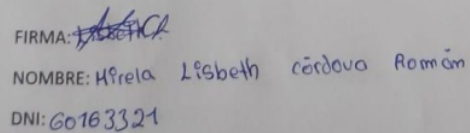 FIRMA:
NOMBRE: Mirela Lisbeth córdova Román
DNI: 60163321